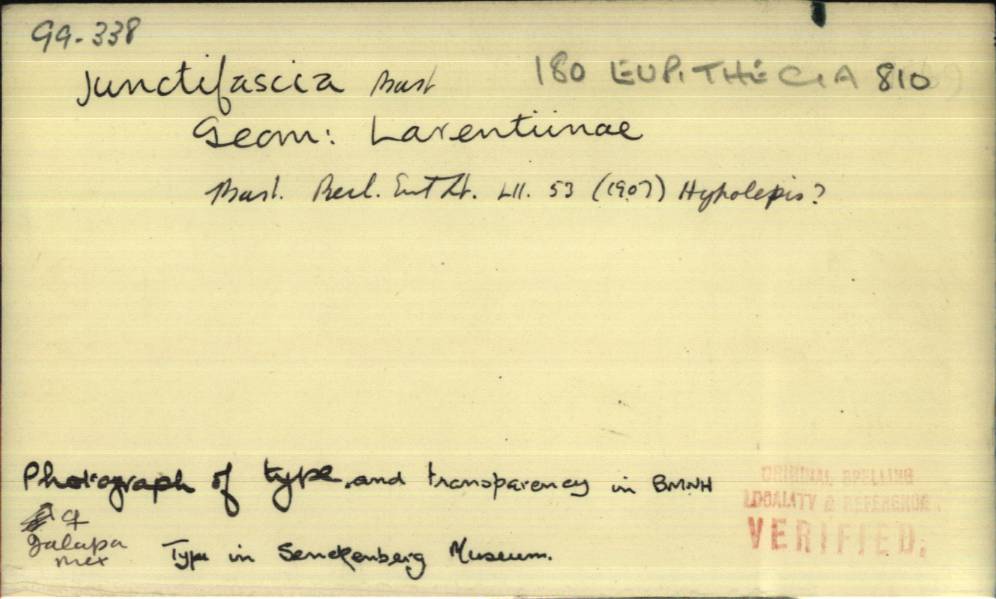 99.338
junctifascia Bast 180 EUPITHECIA 810
Geom: Larentiinae
Bast. Berl. Ent Zt. LII. 53 (1907) Hypolepis?
Photograph of type and transparency in BMNH
Jalapa
Mex
Type in Senckenberg Museum.
ORIGINAL SPELLING
LOCALITY & REFERENCE
VERIFIED.